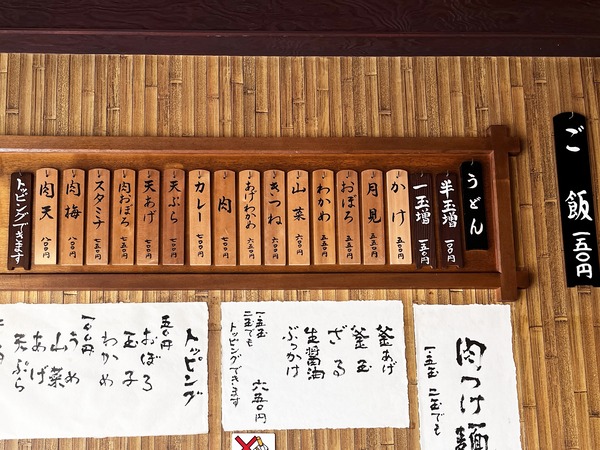 うどん
半玉増 一〇〇円
一玉増 一五〇円
かけ 五〇〇円
月見 五五〇円
おぼろ 五五〇円
わかめ 五五〇円
山菜 六〇〇円
きつね 六五〇円
あげわかめ 六五〇円
肉 七〇〇円
カレー 七〇〇円
天ぷら 七〇〇円
天あげ 七五〇円
肉おぼろ 七五〇円
スタミナ 七五〇円
肉梅 八〇〇円
肉天 八〇〇円
トッピングできます
ご飯 一五〇円
肉つけ麺
一玉 二玉でも
釜あげ
釜玉
ざる
生醤油
ぶっかけ
六五〇円
一玉 二玉でも
トッピングできます
トッピング
五〇円
おぼろ
玉子
わかめ
一〇〇円
うめ
山菜
あげ
天ぷら